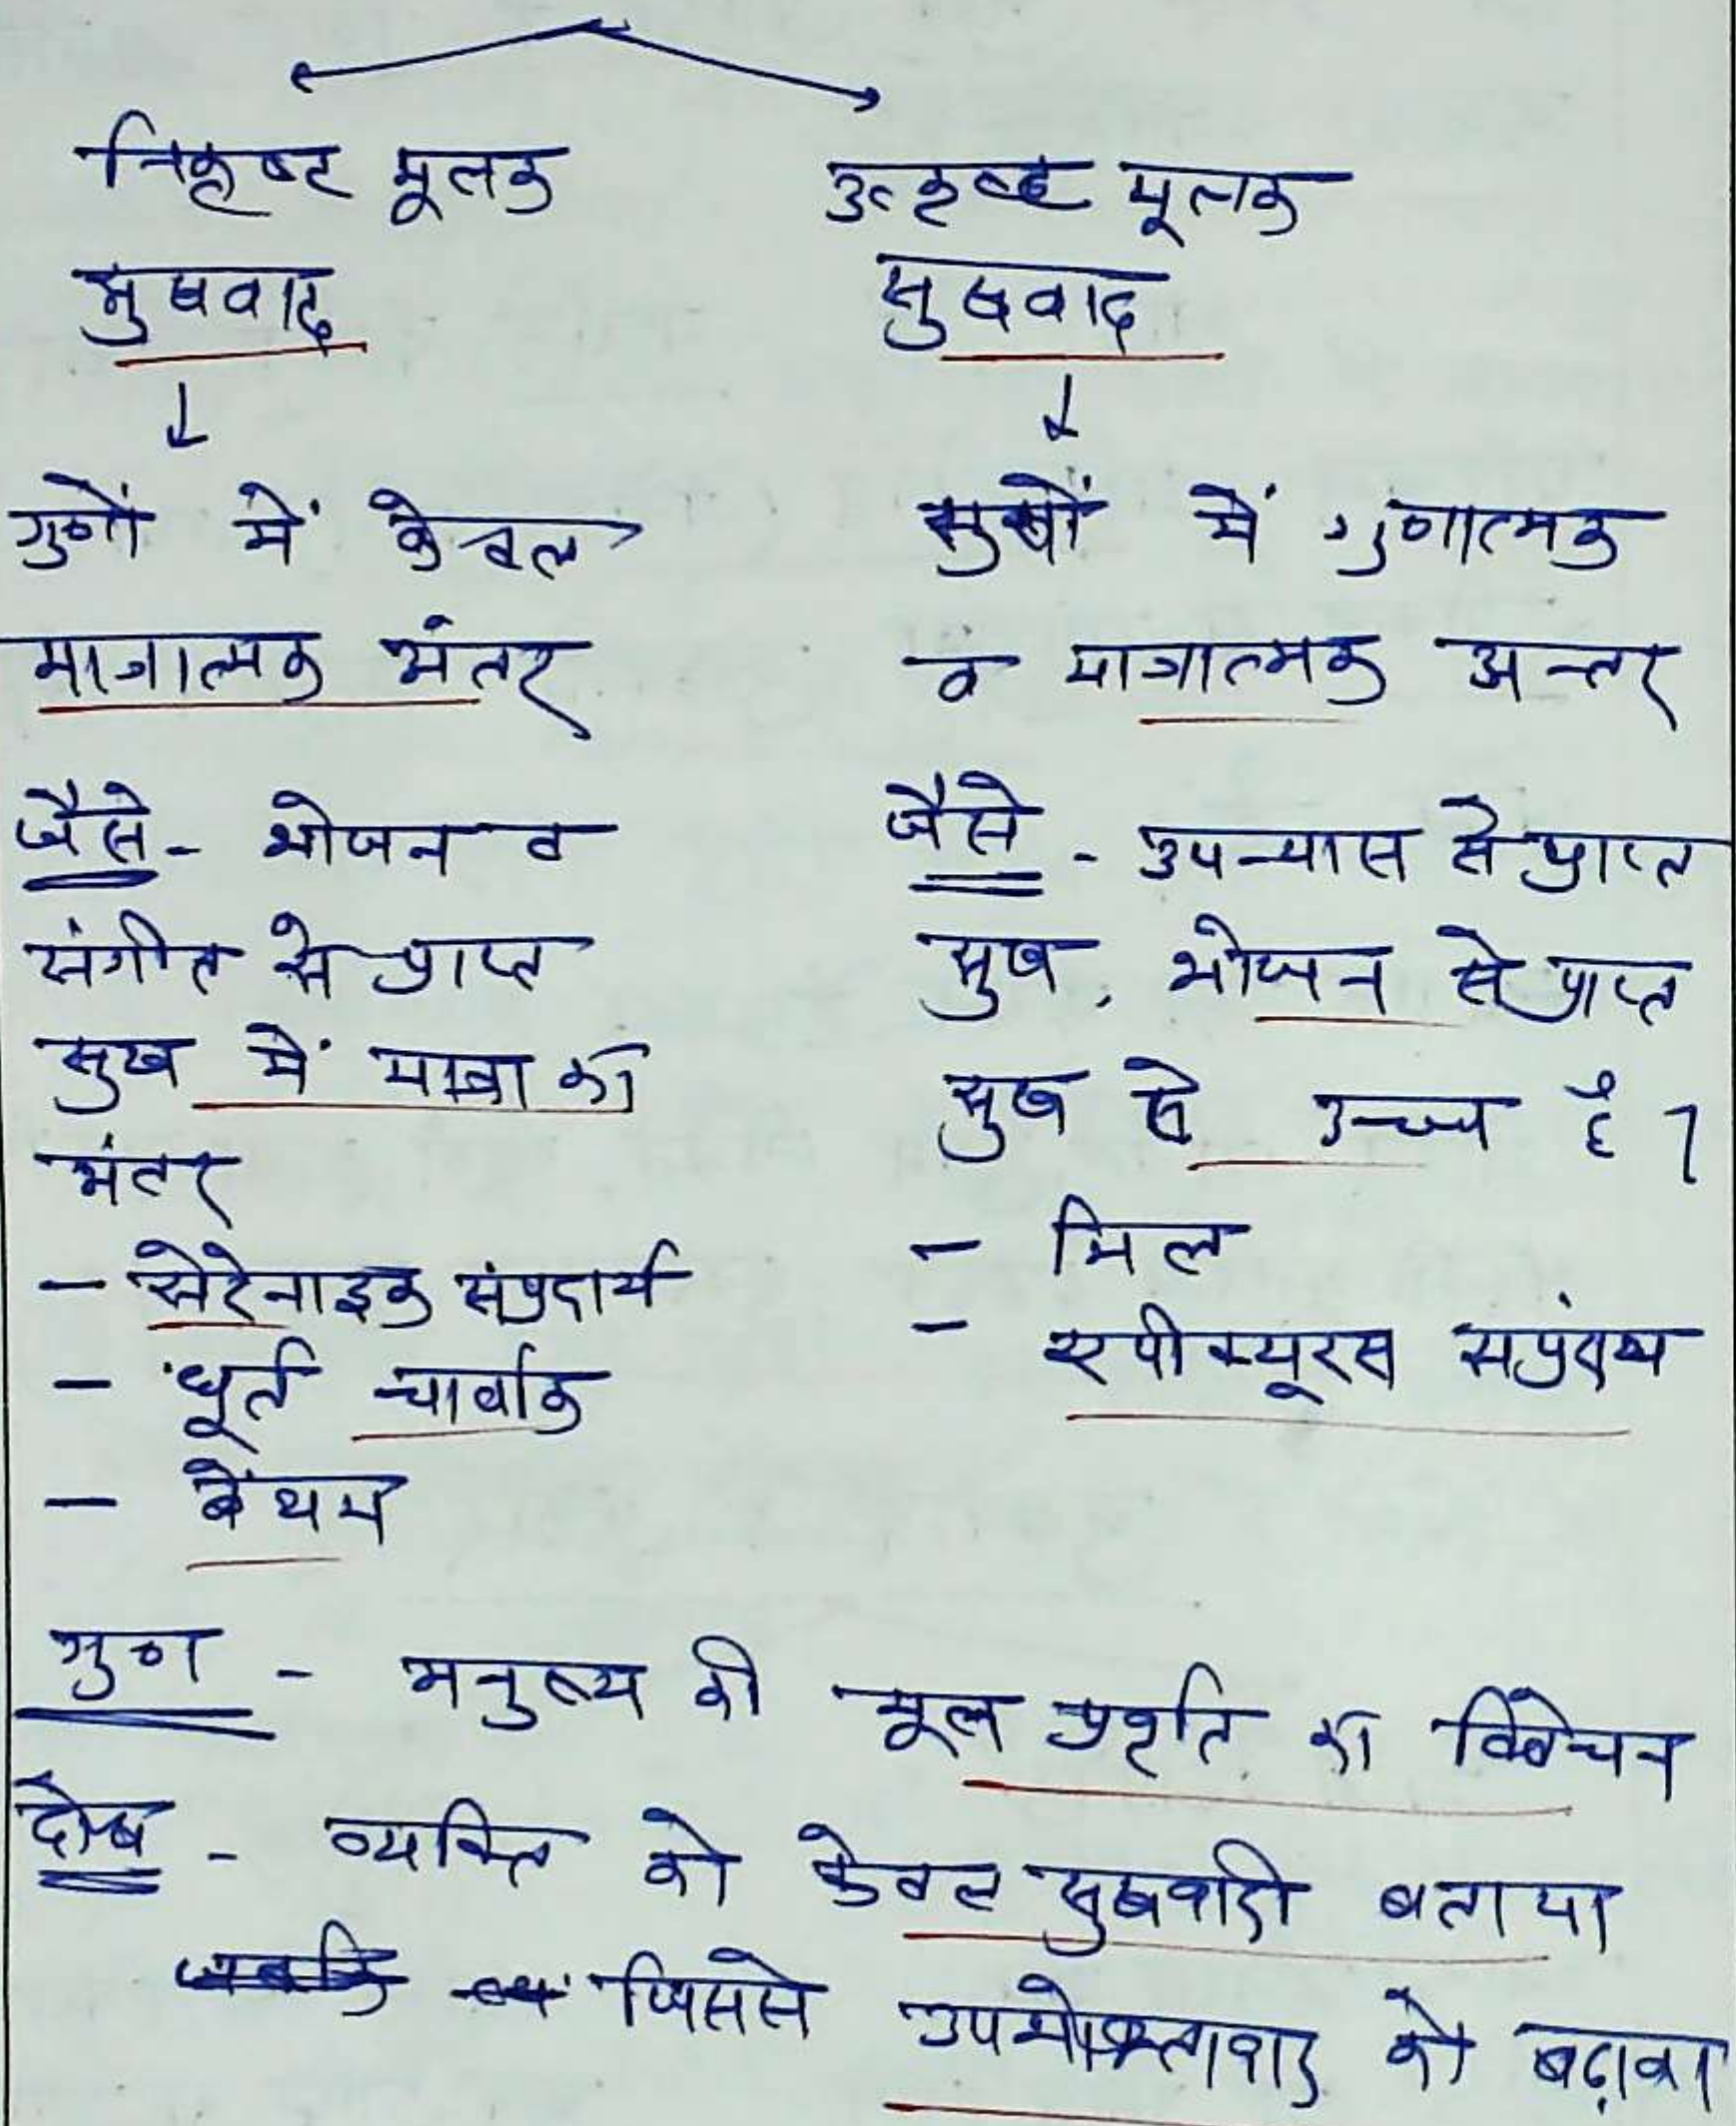 निकृष्ट मूलक
सुखवाद
गुणों में केवल
मात्रात्मक अंतर
जैसे - भोजन व
संगीत से प्राप्त
सुख में मात्रा का
अंतर
- सेरेनाइक संप्रदाय
- धूर्त चार्वाक
- बेंथम
उत्कृष्ट मूलक
सुखवाद
सुखों में गुणात्मक
व मात्रात्मक अन्तर
जैसे - उपन्यास से प्राप्त
सुख, भोजन से प्राप्त
सुख से उच्च है।
- मिल
- एपीक्यूरस संप्रदाय
गुण - मनुष्य की मूल प्रवृति का विवेचन
दोष - व्यक्ति को केवल सुखवादी बताया
जिससे उपभोक्तावाद को बढ़ावा